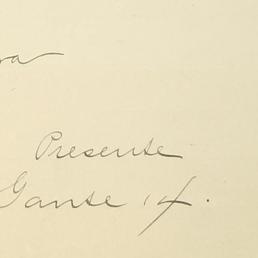 ra
Presente
Gante 14.